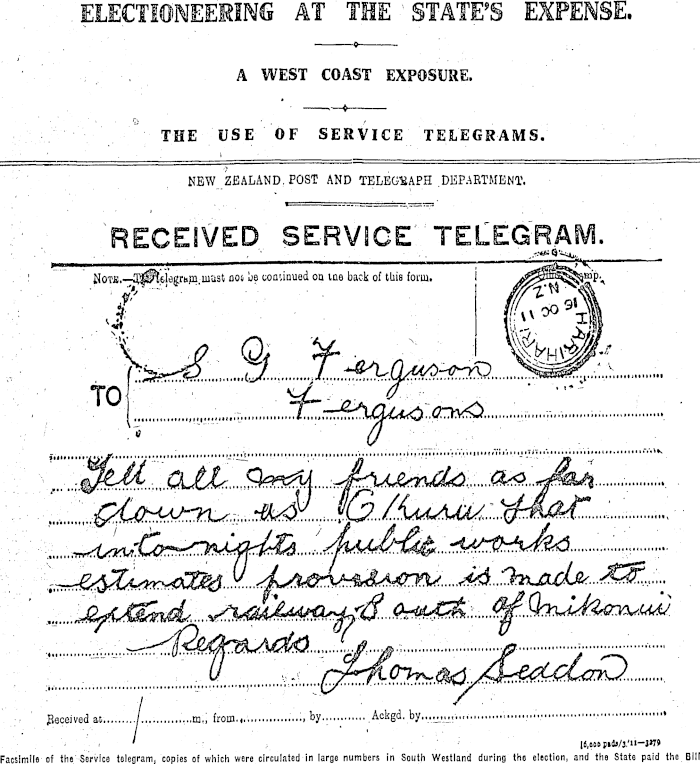 ELECTIONEERING AT THE STATE'S EXPENSE.
A WEST COAST EXPOSURE.
THE USE OF SERVICE TELEGRAMS.
NEW ZEALAND POST AND TELEGRAPH DEPARTMENT.
RECEIVED SERVICE TELEGRAM.
NOTE.—This telegram must not be continued on the back of this form.
HARIHARI
16 OC 11
N.Z
TO
S G Ferguson
Fergusons
Tell all my friends as far
down as Okuru that
in to-nights public works
estimates provision is made to
extend railway South of Mikonui
Regards
Thomas Seddon
Received at / m., from , by Ackgd. by
[6,000 pads/3/'11—3279
Facsimile of the Service telegram, copies of which were circulated in large numbers in South Westland during the election, and the State paid the Bill